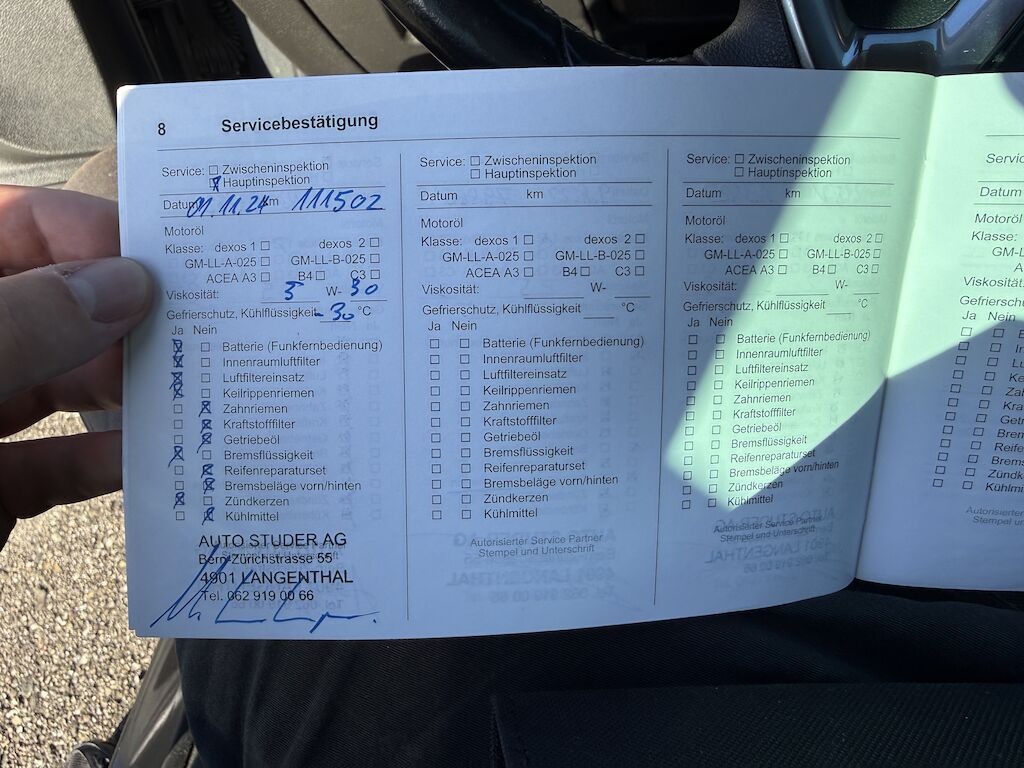 8 Servicebestätigung
Service: ☐ Zwischeninspektion
☒ Hauptinspektion
Datum 01.11.24 km 111502
Motoröl
Klasse: dexos 1 ☐ dexos 2 ☐
GM-LL-A-025 ☐ GM-LL-B-025 ☐
ACEA A3 ☐ B4 ☐ C3 ☐
Viskosität: 5 W- 30
Gefrierschutz, Kühlflüssigkeit -30 °C
Ja Nein
☒ ☐ Batterie (Funkfernbedienung)
☒ ☐ Innenraumluftfilter
☒ ☐ Luftfiltereinsatz
☒ ☐ Keilrippenriemen
☐ ☒ Zahnriemen
☐ ☒ Kraftstofffilter
☐ ☒ Getriebeöl
☒ ☐ Bremsflüssigkeit
☐ ☒ Reifenreparaturset
☐ ☒ Bremsbeläge vorn/hinten
☒ ☐ Zündkerzen
☐ ☒ Kühlmittel
AUTO STUDER AG
Bern-Zürichstrasse 55
4901 LANGENTHAL
Tel. 062 919 00 66
Service: ☐ Zwischeninspektion
☐ Hauptinspektion
Datum km
Motoröl
Klasse: dexos 1 ☐ dexos 2 ☐
GM-LL-A-025 ☐ GM-LL-B-025 ☐
ACEA A3 ☐ B4 ☐ C3 ☐
Viskosität: W-
Gefrierschutz, Kühlflüssigkeit °C
Ja Nein
☐ ☐ Batterie (Funkfernbedienung)
☐ ☐ Innenraumluftfilter
☐ ☐ Luftfiltereinsatz
☐ ☐ Keilrippenriemen
☐ ☐ Zahnriemen
☐ ☐ Kraftstofffilter
☐ ☐ Getriebeöl
☐ ☐ Bremsflüssigkeit
☐ ☐ Reifenreparaturset
☐ ☐ Bremsbeläge vorn/hinten
☐ ☐ Zündkerzen
☐ ☐ Kühlmittel
Autorisierter Service Partner
Stempel und Unterschrift
Service: ☐ Zwischeninspektion
☐ Hauptinspektion
Datum km
Motoröl
Klasse: dexos 1 ☐ dexos 2 ☐
GM-LL-A-025 ☐ GM-LL-B-025 ☐
ACEA A3 ☐ B4 ☐ C3 ☐
Viskosität: W-
Gefrierschutz, Kühlflüssigkeit °C
Ja Nein
☐ ☐ Batterie (Funkfernbedienung)
☐ ☐ Innenraumluftfilter
☐ ☐ Luftfiltereinsatz
☐ ☐ Keilrippenriemen
☐ ☐ Zahnriemen
☐ ☐ Kraftstofffilter
☐ ☐ Getriebeöl
☐ ☐ Bremsflüssigkeit
☐ ☐ Reifenreparaturset
☐ ☐ Bremsbeläge vorn/hinten
☐ ☐ Zündkerzen
☐ ☐ Kühlmittel
Autorisierter Service Partner
Stempel und Unterschrift
Datum
Motoröl
Klasse:
Viskosität:
Ja Nein